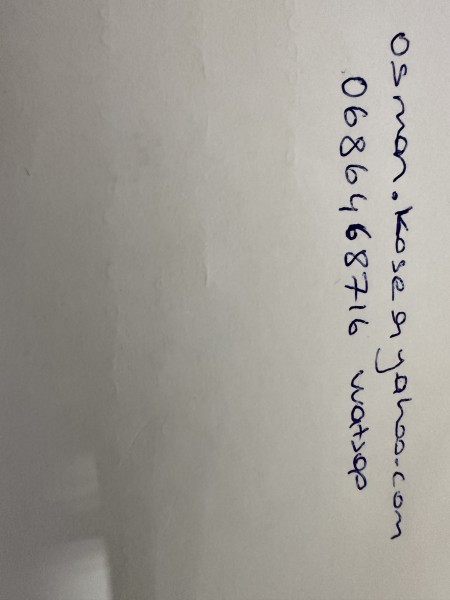 osman.kose@yahoo.com
0686468716 watsap